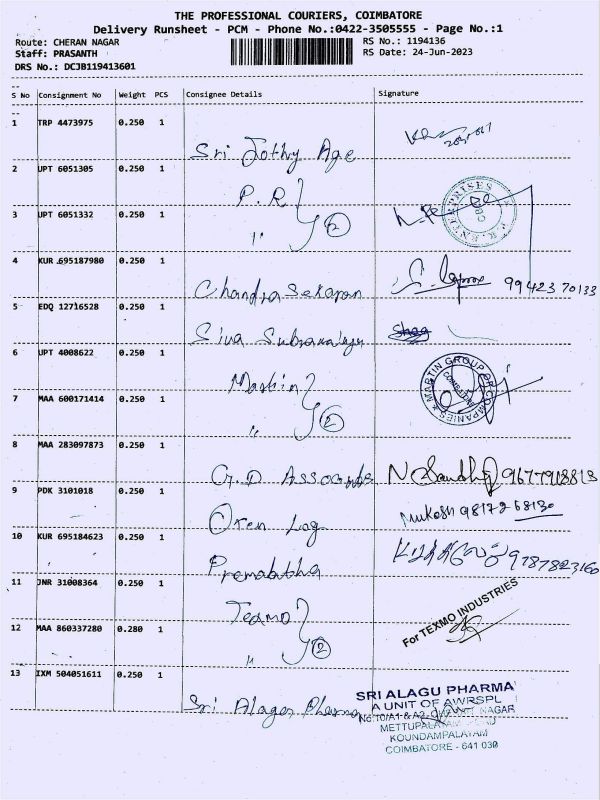 THE PROFESSIONAL COURIERS, COIMBATORE
Delivery Runsheet - PCM - Phone No.:0422-3505555 - Page No.:1
Route: CHERAN NAGAR RS No.: 1194136
Staff: PRASANTH RS Date: 24-Jun-2023
DRS No.: DCJB119413601
S No Consignment No Weight PCS Consignee Details Signature
1 TRP 4473975 0.250 1
Sri Jothy Age
2 UPT 6051305 0.250 1
P.R
3 UPT 6051332 0.250 1
" 2
P.R. ENTERPRISES CBE
4 KUR 695187980 0.250 1
Chandra Sekaran 99423 70133
5 EDQ 12716528 0.250 1
Siva
6 UPT 4008622 0.250 1
Martin
7 MAA 600171414 0.250 1
" 2
MARTIN GROUP OF COMPANIES COIMBATORE
8 MAA 283097873 0.250 1
G.D 9677908813
9 PDK 3101018 0.250 1
Mukesh 98172 68130
10 KUR 695184623 0.250 1
9787823160
11 JNR 31008364 0.250 1
Texmo
For TEXMO INDUSTRIES
12 MAA 860337280 0.280 1
" 2
13 IXM 504051611 0.250 1
Sri Alagu Pharma
SRI ALAGU PHARMA
A UNIT OF AWRSPL
No.10/A1 & A2, NAGAR
METTUPALAYAM ROAD
KOUNDAMPALAYAM
COIMBATORE - 641 030